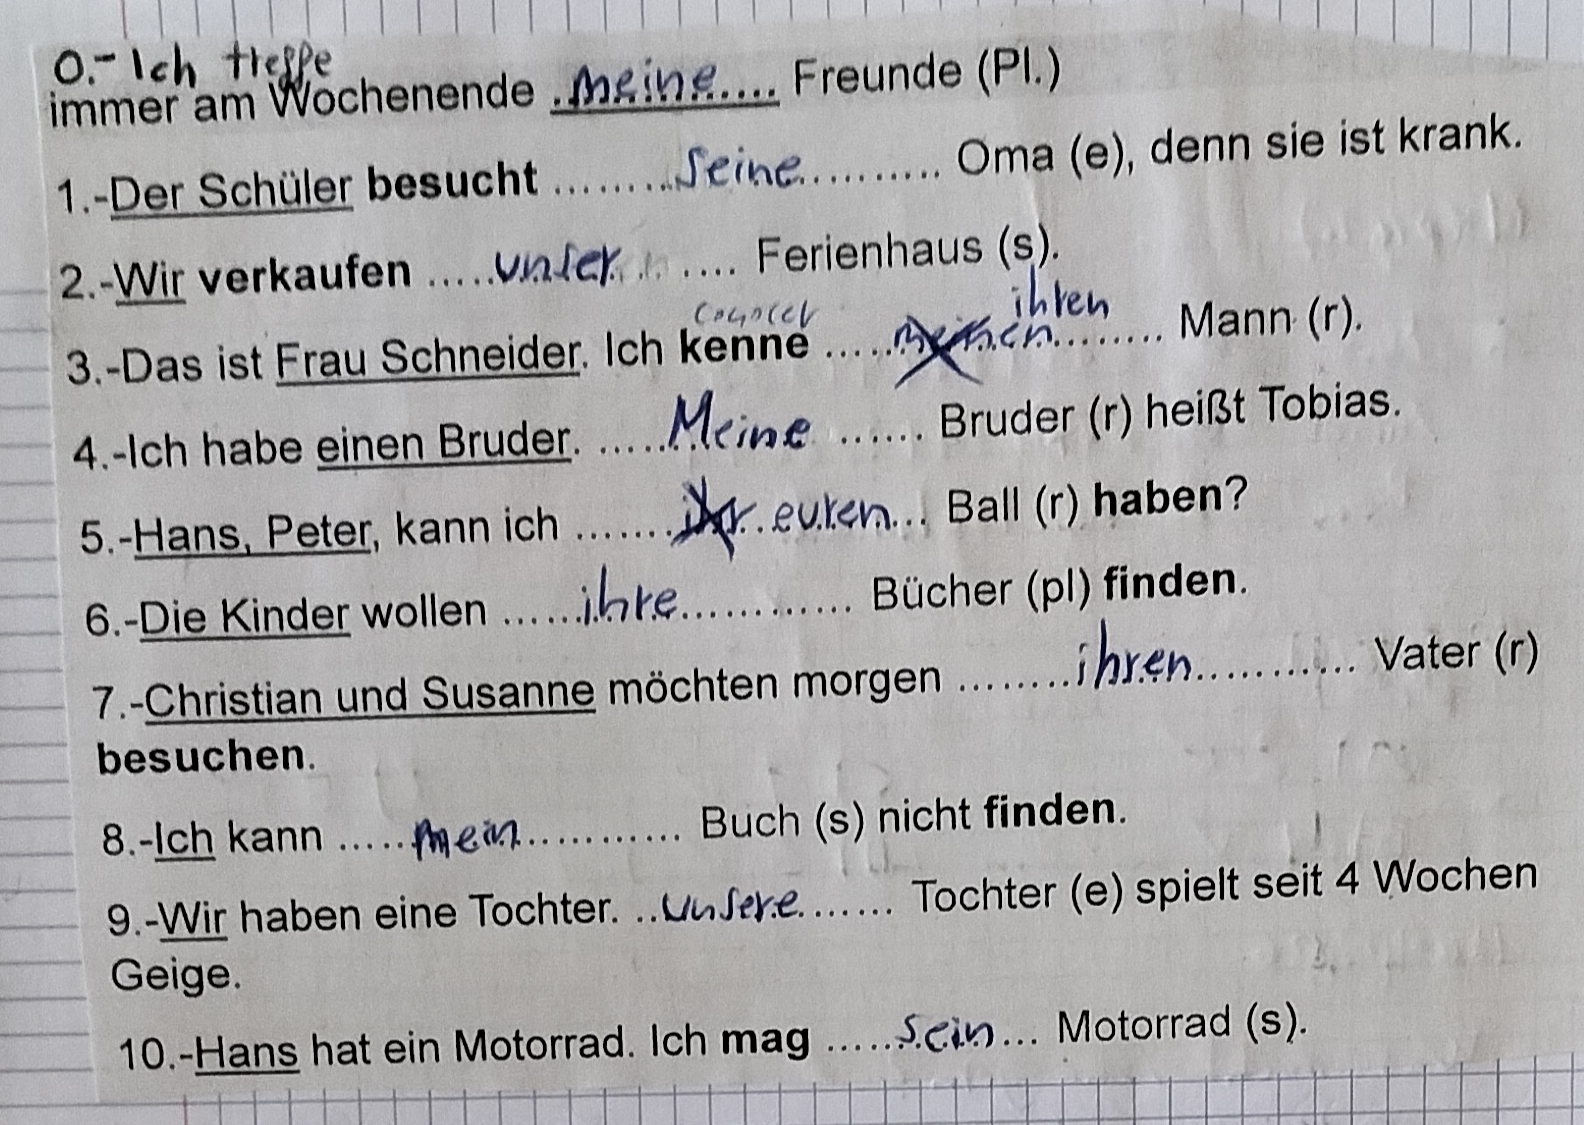 0.- Ich treffe
immer am Wochenende ..meine.... Freunde (Pl.)
1.-Der Schüler besucht .........seine.......... Oma (e), denn sie ist krank.
2.-Wir verkaufen .....unser .... Ferienhaus (s).
conocer ihren
3.-Das ist Frau Schneider. Ich kenne .....meinen........ Mann (r).
4.-Ich habe einen Bruder. .......Meine ...... Bruder (r) heißt Tobias.
5.-Hans, Peter, kann ich .......ihr..euren... Ball (r) haben?
6.-Die Kinder wollen ......ihre............ Bücher (pl) finden.
7.-Christian und Susanne möchten morgen ........ihren........... Vater (r)
besuchen.
8.-Ich kann .....mein............ Buch (s) nicht finden.
9.-Wir haben eine Tochter. ..unsere....... Tochter (e) spielt seit 4 Wochen
Geige.
10.-Hans hat ein Motorrad. Ich mag .....sein... Motorrad (s).